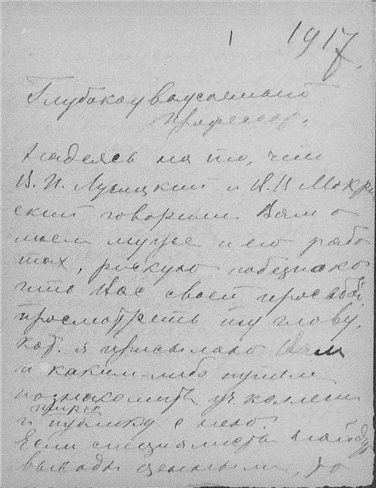 1 1917.
Глубокоуважаемый
профессор,
Надеясь на то, что
В. И. Лучицкий и В. В. Мокрин-
ский говорили Вам о
моем муже и его рабо-
тах, рискую побезпоко-
ить Вас своей просьбой,
просмотреть ту главу,
кот. я присылаю Вам
и каким-либо путем
познакомить уч. коллегию
и публику с нею.
Если специалисты найдут
выводы ценными, то